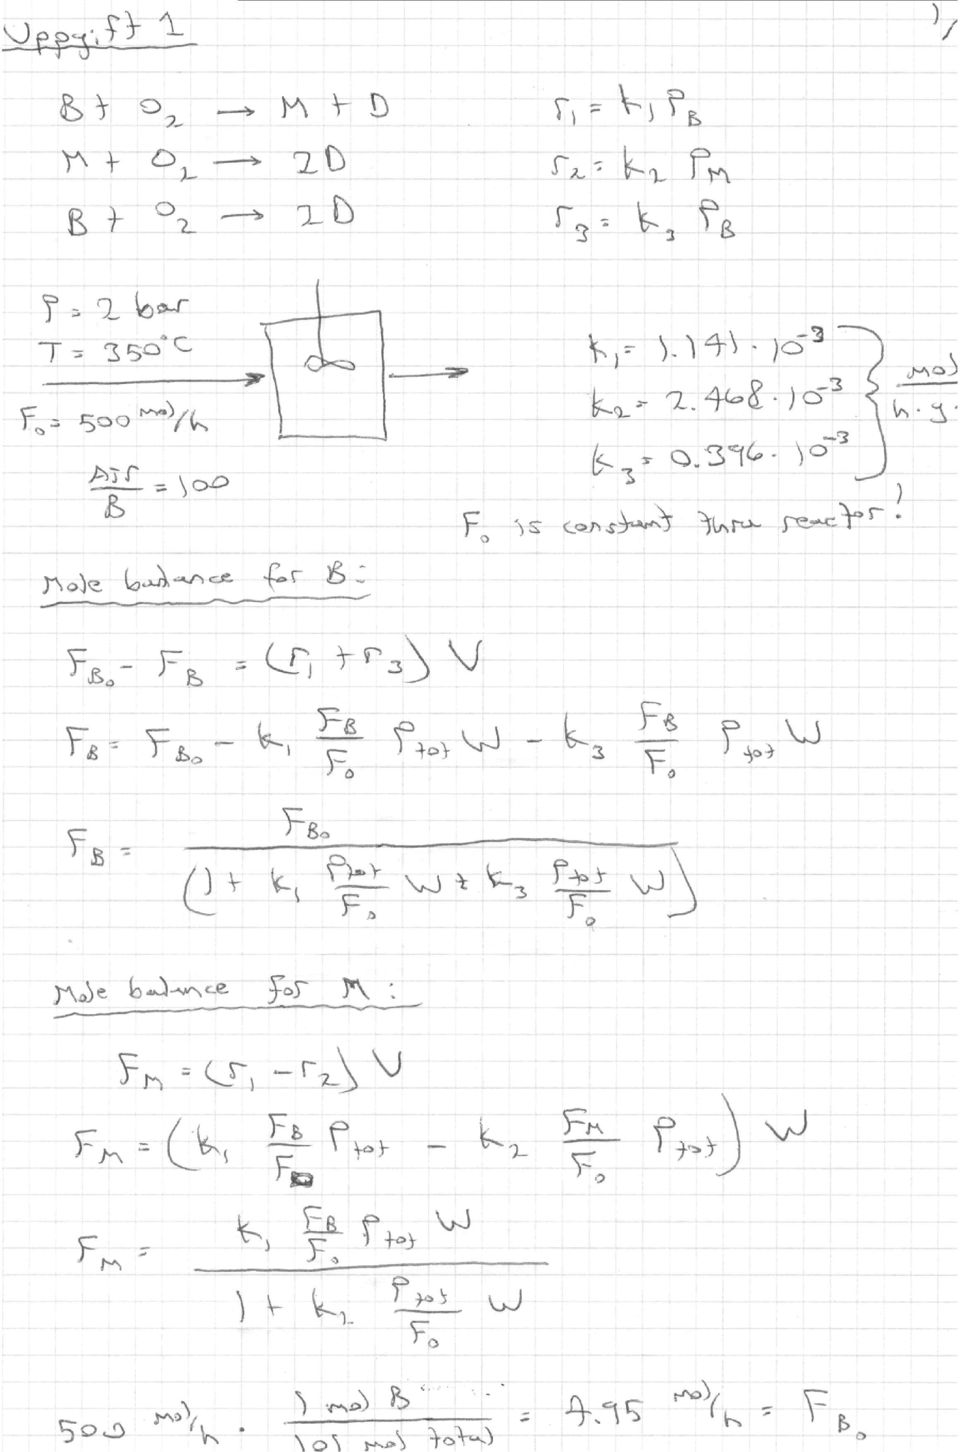 1/
Uppgift 1
B + O₂ → M + D r₁ = k₁ P_B
M + O₂ → 2D r₂ = k₂ P_M
B + O₂ → 2D r₃ = k₃ P_B
P = 2 bar
T = 350°C
F₀ = 500 mol/h
Air/B = 100
k₁ = 1.141 · 10⁻³
k₂ = 2.468 · 10⁻³
k₃ = 0.396 · 10⁻³
mol/h·g·
F₀ is constant thru reactor!
Mole balance for B:
F_B₀ - F_B = (r₁ + r₃) V
F_B = F_B₀ - k₁ F_B/F₀ P_tot W - k₃ F_B/F₀ P_tot W
F_B = F_B₀ / (1 + k₁ P_tot/F₀ W + k₃ P_tot/F₀ W)
Mole balance for M:
F_M = (r₁ - r₂) V
F_M = (k₁ F_B/F₀ P_tot - k₂ F_M/F₀ P_tot) W
F_M = k₁ F_B/F₀ P_tot W / 1 + k₂ P_tot/F₀ W
500 mol/h · 1 mol B / 101 mol total = 4.95 mol/h = F_B₀